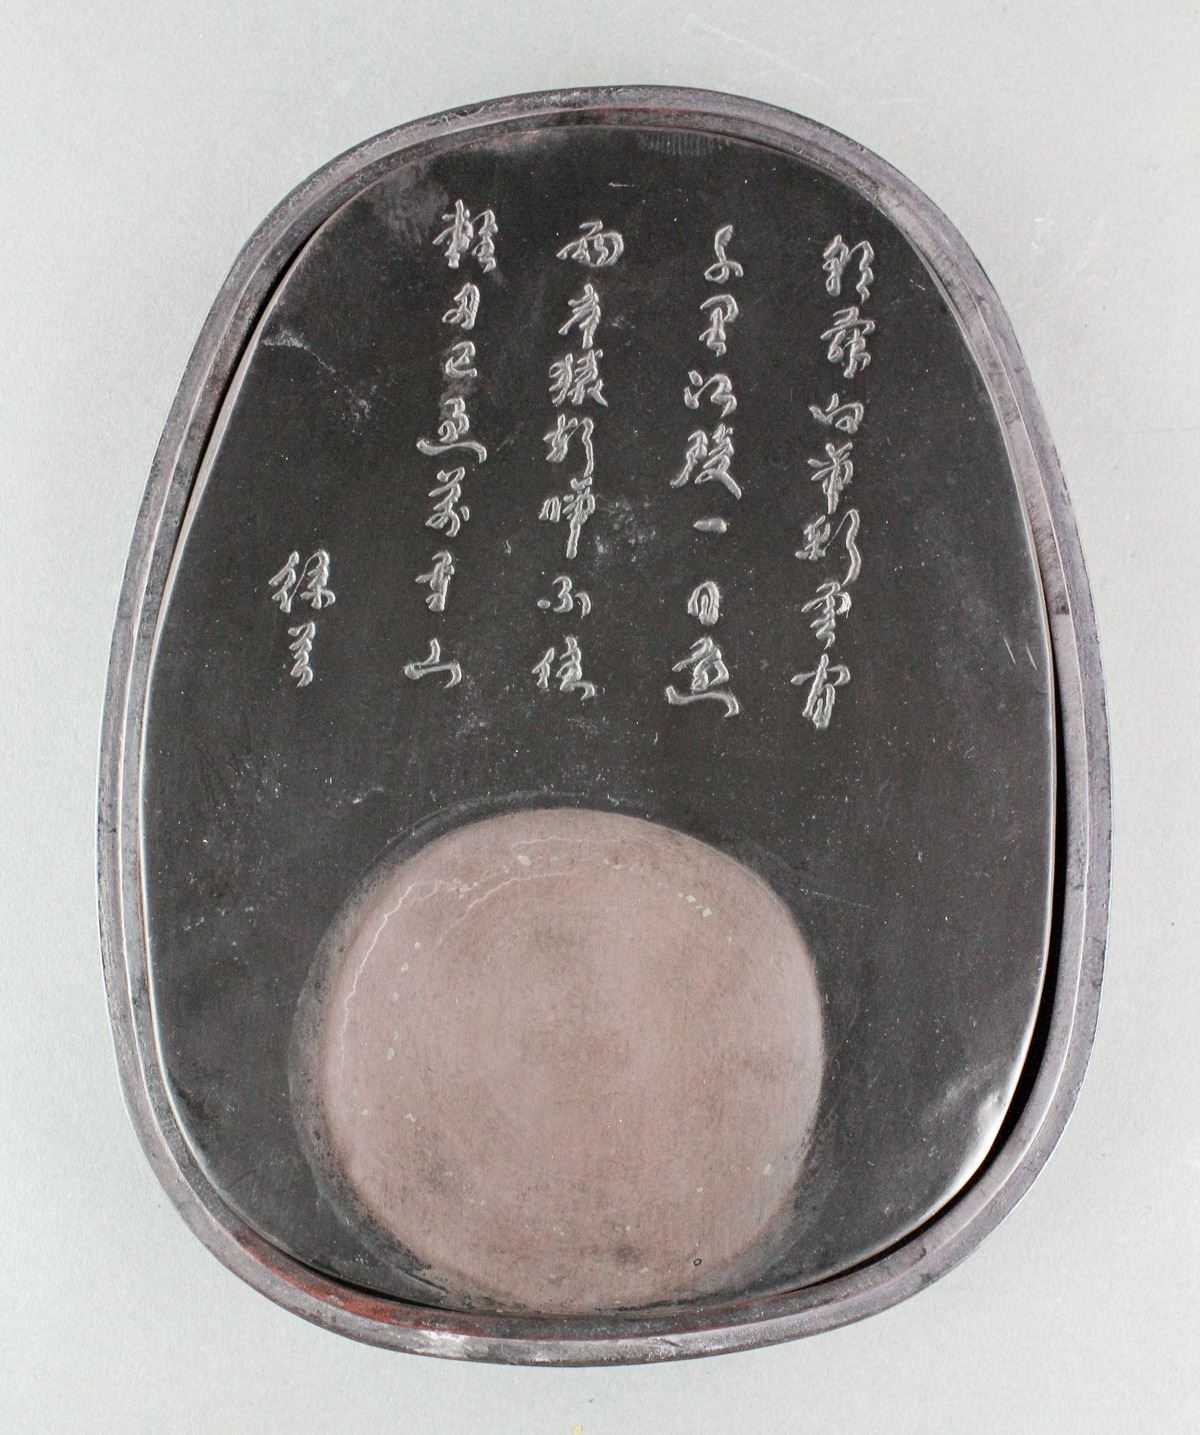 朝辭白帝彩雲間
千里江陵一日還
兩岸猿聲啼不住
輕舟已過萬重山
徐